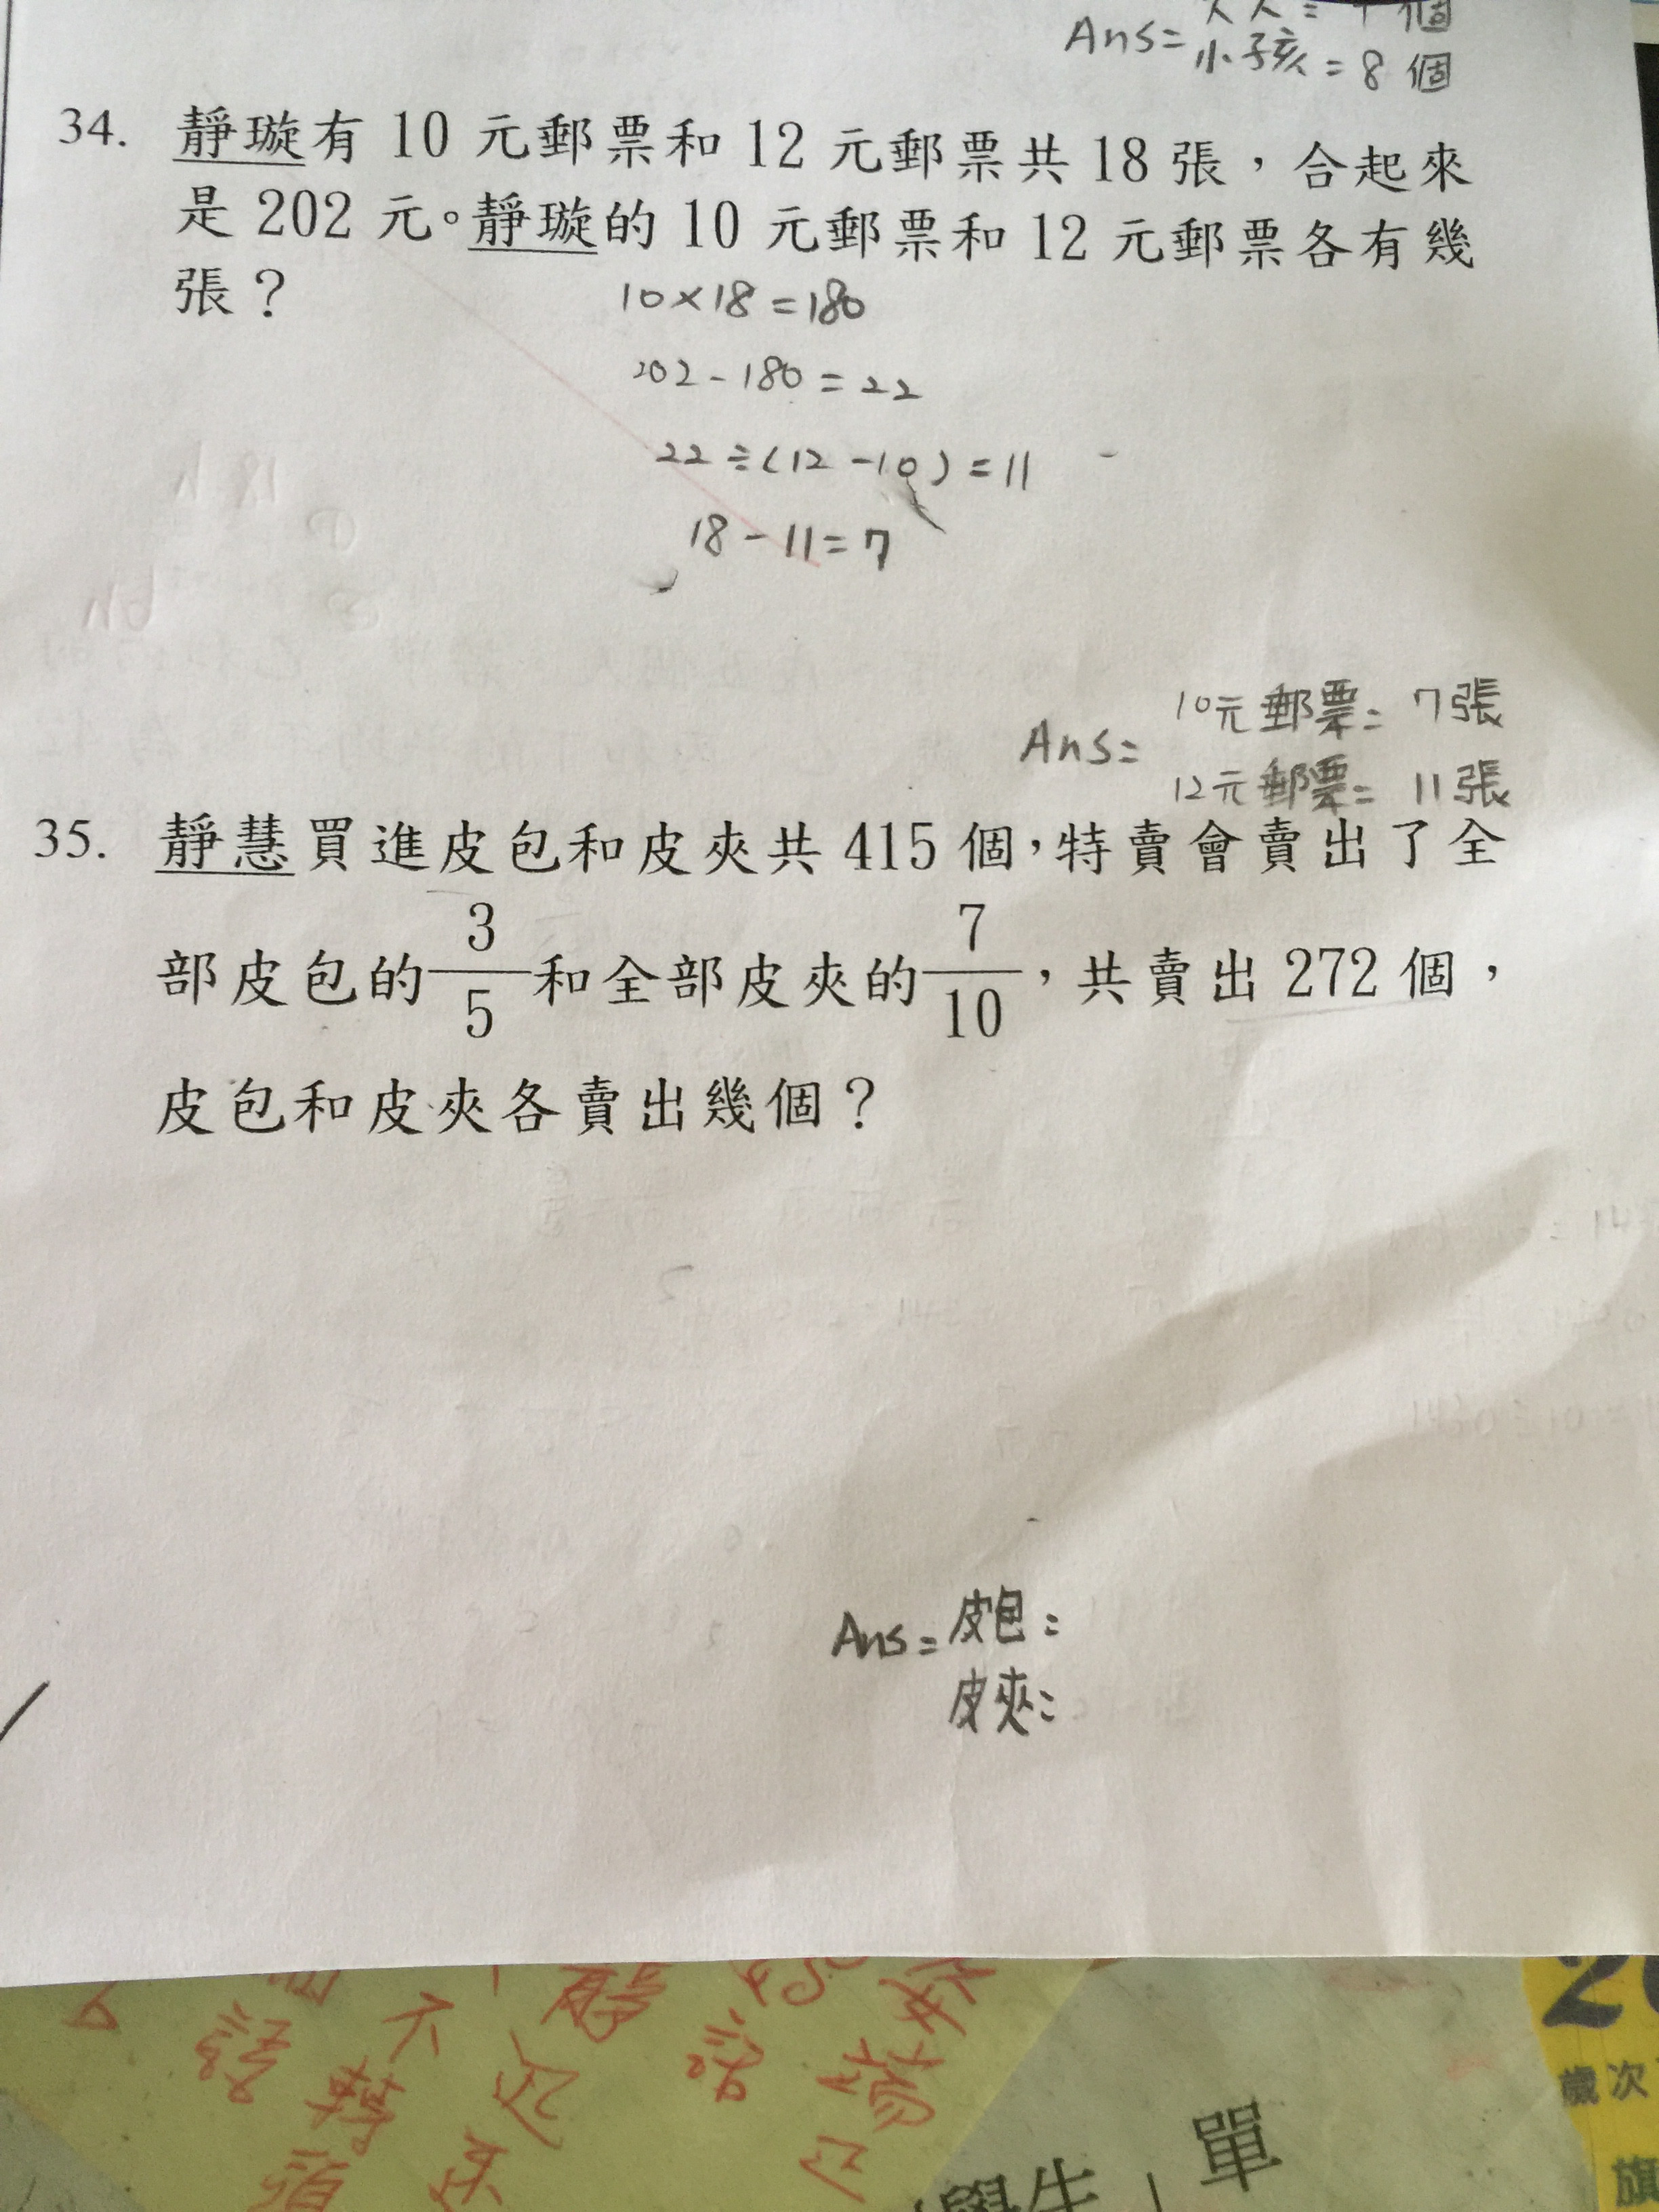 Ans= 大人= 個
小孩=8個
34. 靜璇有 10 元郵票和 12 元郵票共 18 張，合起來
是 202 元。靜璇的 10 元郵票和 12 元郵票各有幾
張？
10×18=180
202-180=22
22÷(12-10)=11
18-11=7
Ans= 10元郵票= 7張
12元郵票= 11張
35. 靜慧買進皮包和皮夾共 415 個，特賣會賣出了全
部皮包的3/5和全部皮夾的7/10，共賣出 272 個，
皮包和皮夾各賣出幾個？
Ans= 皮包=
皮夾=
話 轉 頭
不 起 來
單
學生」
歲次
旗